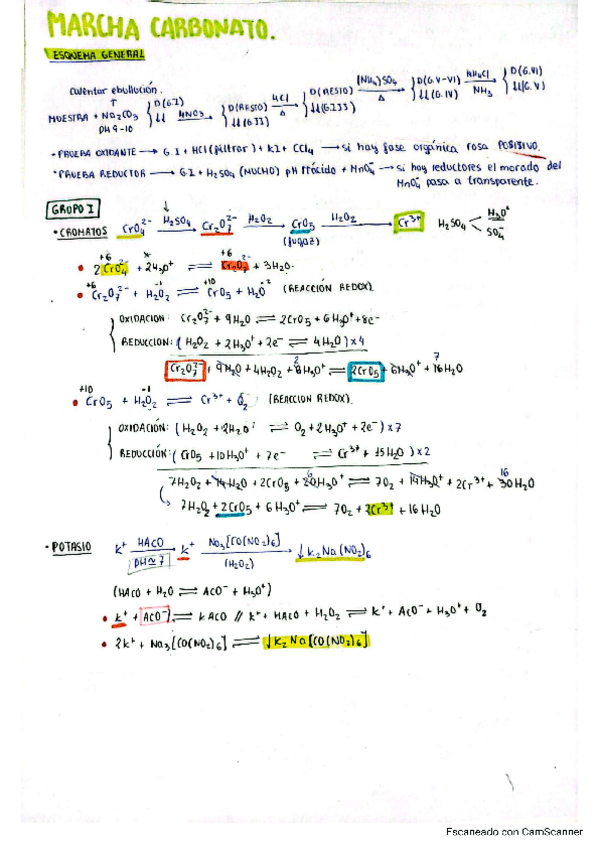 MARCHA CARBONATO.
ESQUEMA GENERAL
Calentar ebullición.
MUESTRA + Na2CO3 } D(G.I) ↓↓ HNO3 → } D(RESTO) ↓↓(G.II) HCl Δ → } D(RESTO) ↓↓(G.III) (NH4)SO4 Δ → } D(G.V-VI) ↓↓(G.IV) NH4Cl NH3 → } D(G.VI) ↓↓(G.V)
PH 9-10
• PRUEBA OXIDANTE → G.I + HCl (filtrar) + KI + CCl4 → si hay fase orgánica rosa POSITIVO.
• PRUEBA REDUCTOR → G.I + H2SO4 (MUCHO) pH ácido + MnO4- → si hay reductores el morado del
MnO4- pasa a transparente.
GRUPO I
• CROMATOS CrO4 2- H2SO4 → Cr2O7 2- H2O2 → CrO5 H2O2 → Cr3+ H2SO4 < H3O+ SO4-
(fugaz)
+6 +6
• 2CrO4 2- + 2H3O+ ⇌ Cr2O7 2- + 3H2O.
+6 -1 +10 -2
• Cr2O7 2- + H2O2 ⇌ CrO5 + H2O (REACCIÓN REDOX)
OXIDACION: Cr2O7 2- + 9H2O ⇌ 2CrO5 + 6H3O+ + 8e-
REDUCCION: (H2O2 + 2H3O+ + 2e- ⇌ 4H2O) x4
Cr2O7 2- + 9H2O + 4H2O2 + 8H3O+ 2 ⇌ 2CrO5 + 6H3O+ + 16H2O 7
+10 -1
• CrO5 + H2O2 ⇌ Cr3+ + O2 (REACCION REDOX).
OXIDACIÓN: (H2O2 + 2H2O ⇌ O2 + 2H3O+ + 2e-) x7
REDUCCIÓN: (CrO5 + 10H3O+ + 7e- ⇌ Cr3+ + 15H2O) x2
7H2O2 + 14H2O + 2CrO5 + 20H3O+ 6 ⇌ 7O2 + 14H3O+ + 2Cr3+ + 30H2O 16
7H2O2 + 2CrO5 + 6H3O+ ⇌ 7O2 + 2Cr3+ + 16H2O
• POTASIO K+ HACO PH≈7 → K+ Na3[CO(NO2)6] (H2O2) → ↓K2Na(NO2)6
(HACO + H2O ⇌ ACO- + H3O+)
• K+ + ACO- ⇌ KACO // K+ + HACO + H2O2 ⇌ K+ + ACO- + H3O+ + O2
• 2K+ + Na3[CO(NO2)6] ⇌ ↓K2Na[CO(NO2)6]
Escaneado con CamScanner